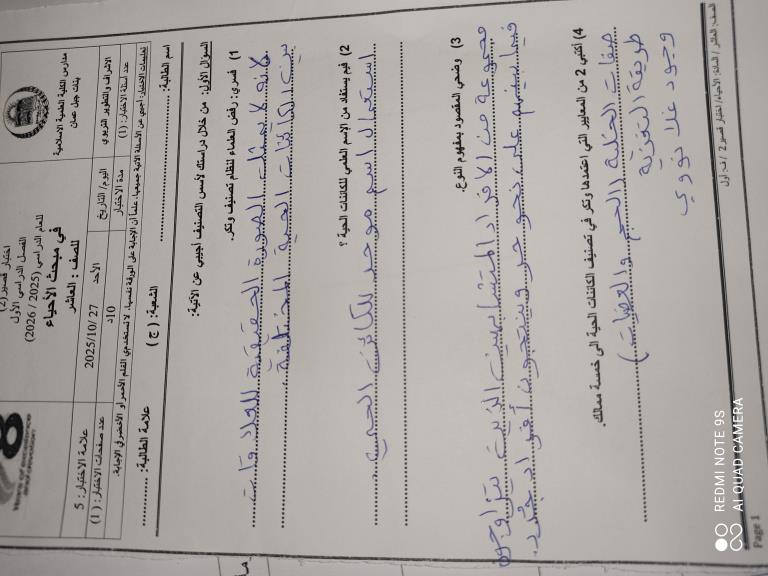 مدارس الكلية العلمية الاسلامية
بنات جبل عمان
اختبار قصير (2)
الفصل الدراسي الأول
للعام الدراسي (2025 / 2026)
في مبحث الأحياء
للصف : العاشر
علامة الاختبار: 5
الاشراف والتطوير التربوي
اليوم/ التاريخ
الأحد
2025/10/ 27
عدد اسئلة الاختبار: (1)
مدة الاختبار
10د
عدد صفحات الاختبار: (1)
تعليمات الاختبار: أجيبي عن الأسئلة الآتية جميعها، علماً أن الإجابة على الورقة نفسها، لا تستخدمي القلم الأحمر أو الأخضر في الإجابة.
اسم الطالبة: ............ الشعبة: ( ج ) علامة الطالبة: ............
السؤال الأول: من خلال دراستك لأسس التصنيف أجيبي عن الآتية:
1) فسري: رفض العلماء لنظام تصنيف ونكر.
لأنه لا يمثل الصورة الحقيقية للعلاقات
بين الكائنات الحية المختلفة.
2) فيم يستفاد من الإسم العلمي للكائنات الحية ؟
استعمال اسم موحد للكائن الحي.
3) وضحي المقصود بمفهوم النوع.
مجموعة من الافراد المتشابهين الذين يتزاوجون
فيما بينهم على نحو حر وينتجون أفراد جدد.
4) أكتبي 2 من المعايير التي اعتمدها ونكر في تصنيف الكائنات الحية الى خمسة ممالك.
صفات الخلية (الحجم والعضيات)
طريقة التغذية
وجود غلاف نووي
الصف: العاشر / المادة: الأحياء/ اختبار قصير 2 / ف: أول
Page 1
REDMI NOTE 9S
AI QUAD CAMERA